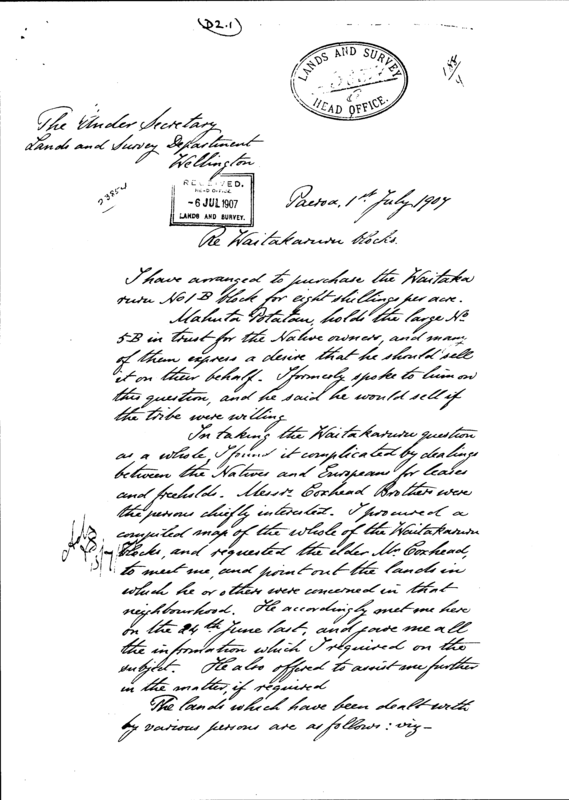 (D2.1)
LANDS AND SURVEY
HEAD OFFICE.
The Under Secretary
Lands and Survey Department
Wellington
RECEIVED.
HEAD OFFICE
-6 JUL 1907
LANDS AND SURVEY.
Paeroa, 1st July, 1907
Re Waitakaruru blocks.
I have arranged to purchase the Waitaka
ruru No 1 B block for eight shillings per acre.
Mahuta Potatau, holds the large No
5B in trust for the Native owners, and many
of them express a desire that he should sell
it on their behalf. I formerly spoke to him on
this question, and he said he would sell if
the tribe were willing
In taking the Waitakaruru question
as a whole, I found it complicated by dealings
between the Natives and Europeans for leases
and freeholds. Messrs. Coxhead Brothers were
the persons chiefly interested. I procured a
compiled map of the whole of the Waitakaruru
blocks, and requested the elder Mr Coxhead,
to meet me, and point out the lands in
which he or others were concerned in that
neighbourhood. He accordingly met me here
on the 24th June last, and gave me all
the information which I required on the
subject. He also offered to assist me further
in the matter, if required
The lands which have been dealt with
by various persons are as follows: viz-